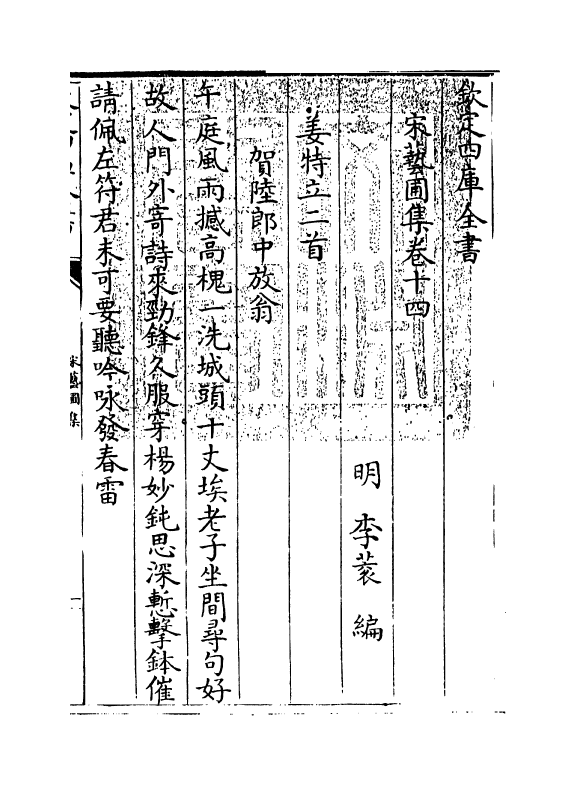 欽定四庫全書
宋藝圃集卷十四
明 李蓘 編
姜特立二首
賀陸郎中放翁
午庭風雨撼高槐一洗城頭十丈埃老子坐間尋句好
故人門外寄詩來勁鋒久服穿楊妙鈍思深慙擊鉢催
請佩左符君未可要聽吟咏發春雷
宋藝圃集
一